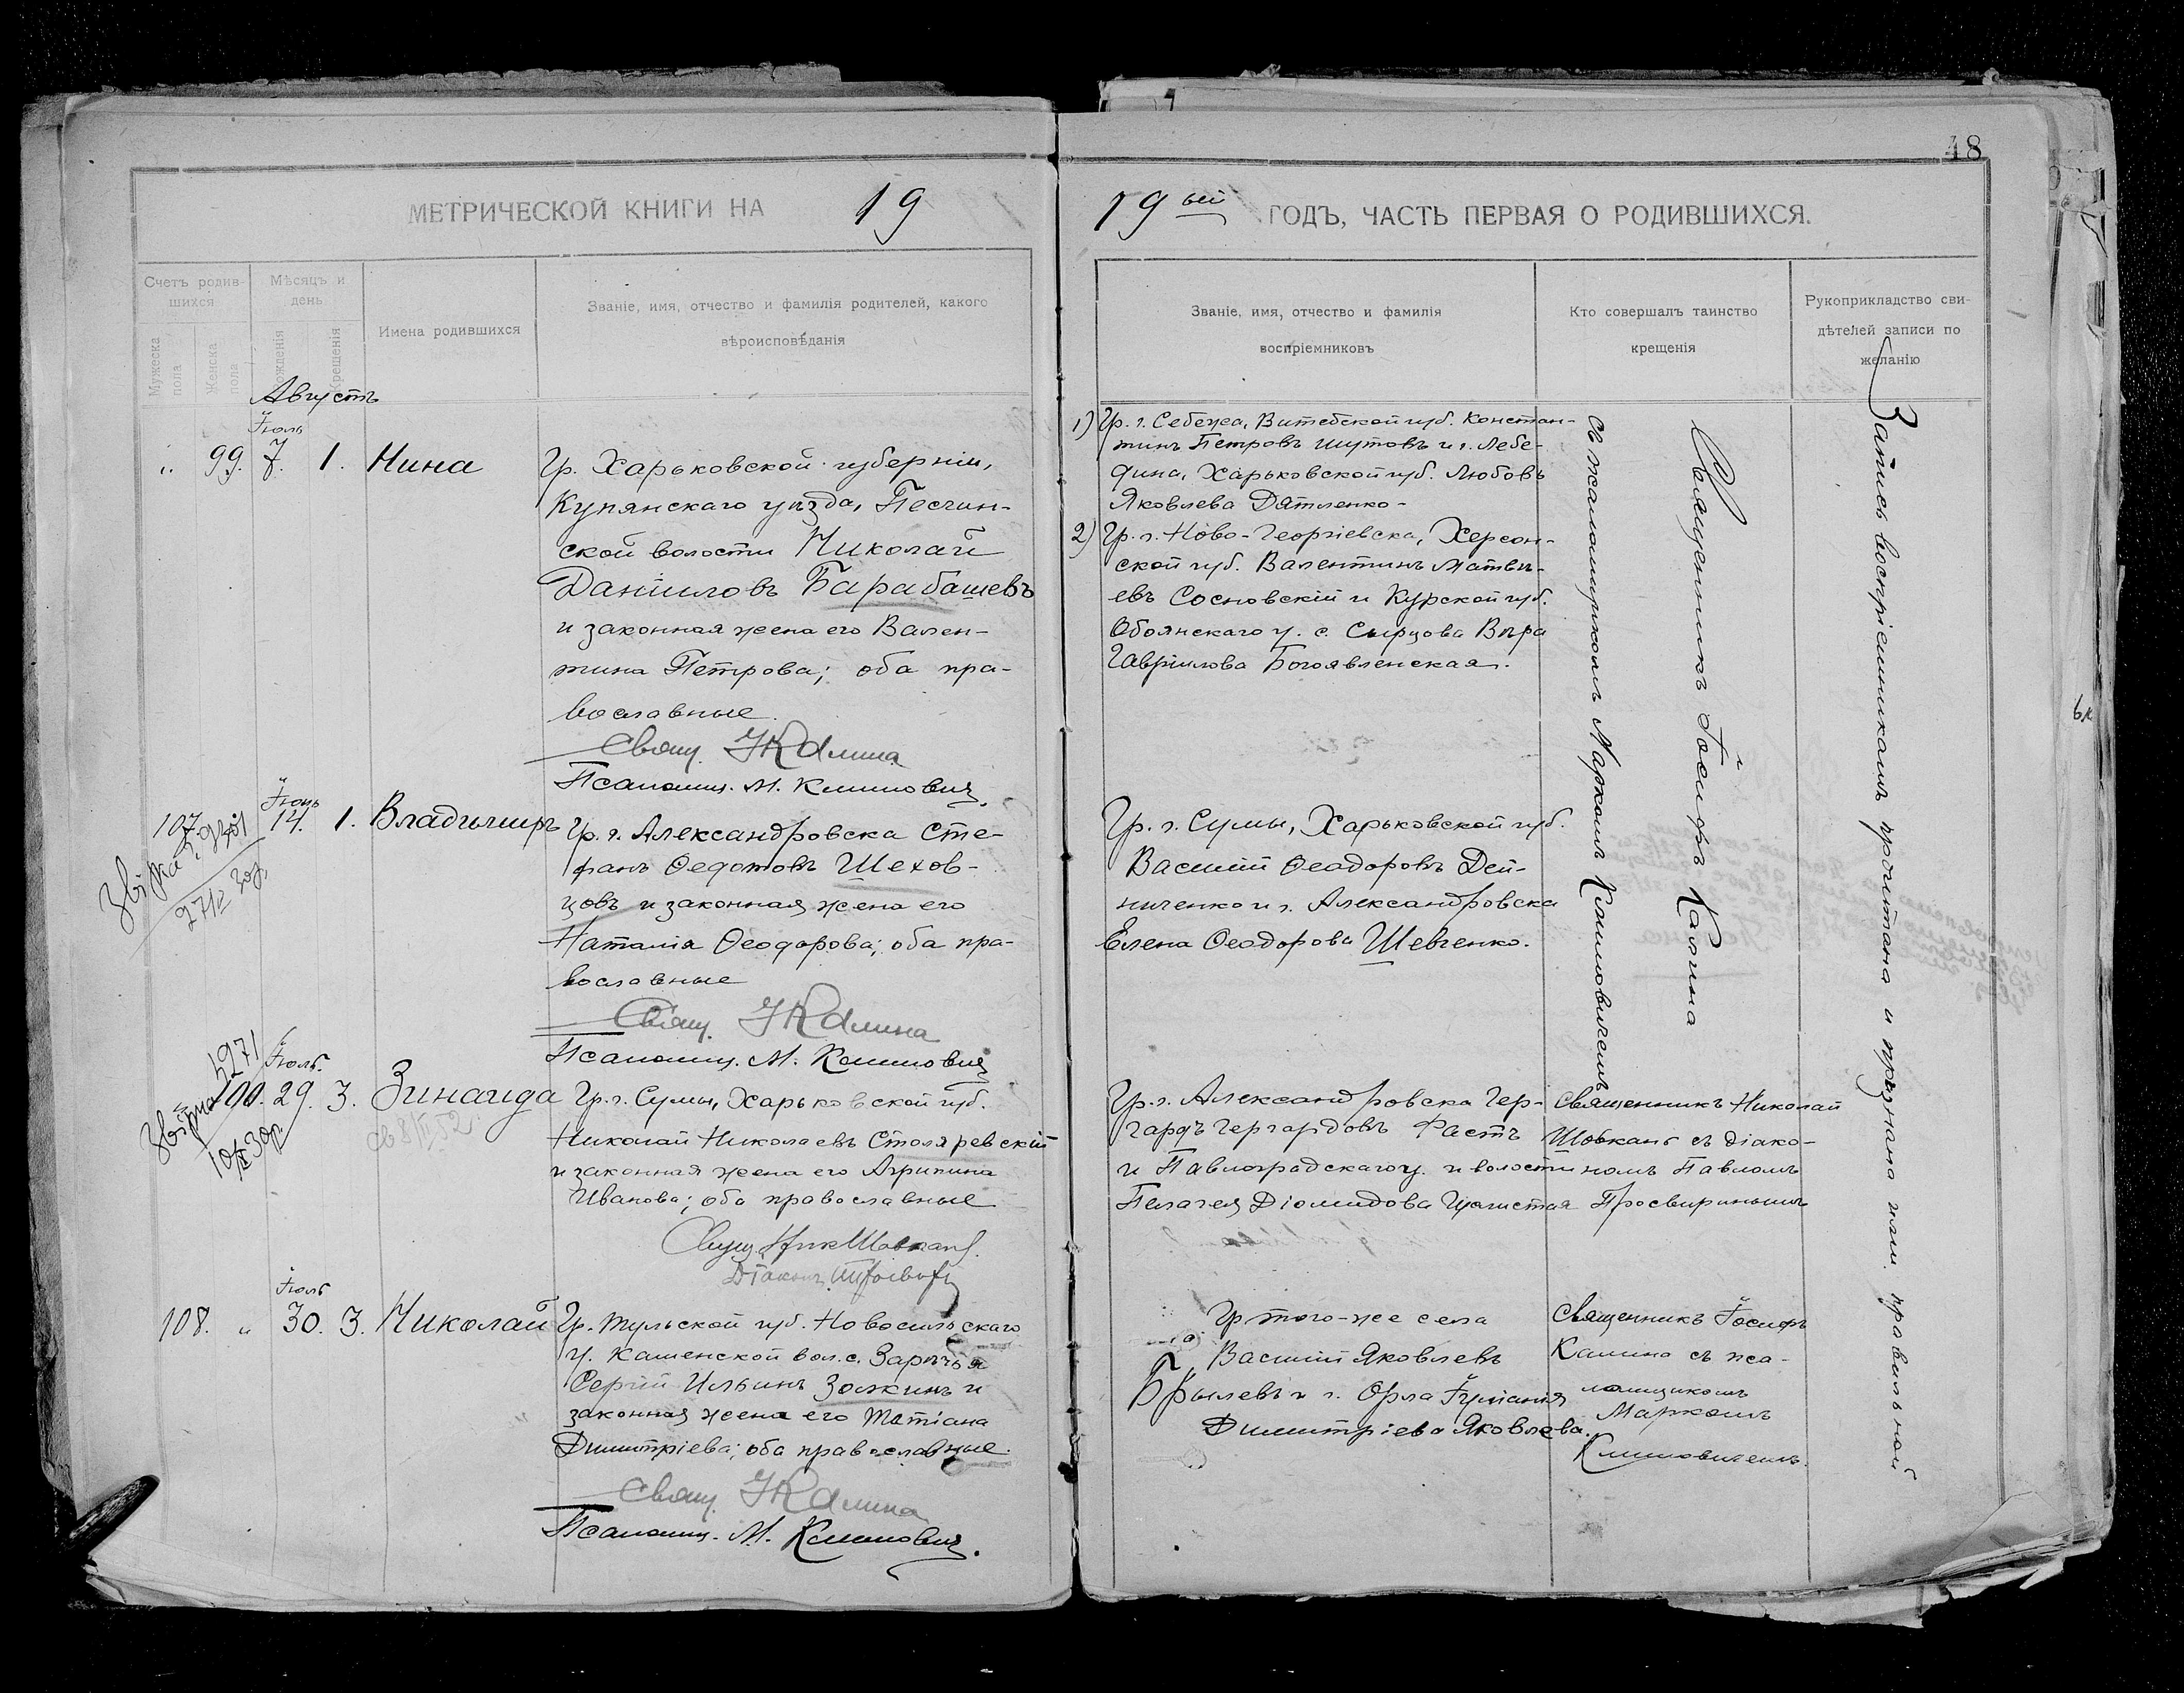 48
МЕТРИЧЕСКОЙ КНИГИ НА 19
19ый ГОДЪ, ЧАСТЬ ПЕРВАЯ О РОДИВШИХСЯ.
Счетъ родив-
шихся
Мужеска
пола
Женска
пола
Мѣсяцъ и
день
Рожденія
Крещенія
Имена родившихся
Званіе, имя, отчество и фамилія родителей, какого
вѣроисповѣданія
Званіе, имя, отчество и фамилія
воспріемниковъ
Кто совершалъ таинство
крещенія
Рукоприкладство сви-
дѣтелей записи по
желанію
Августъ
Іюль
" 99. 7. 1. Нина
Гр. Харьковской губерніи,
Купянскаго уѣзда, Песчин-
ской волости Николай
Даніиловъ Барабашевъ
и законная жена его Вален-
тина Петрова; оба пра-
вославные.
Свящ. І Калина
Псаломщ. М. Климовичъ
1) Гр. г. Себежа, Витебской губ. Констан-
тинъ Петровъ Шутовъ и г. Лебе-
дина, Харьковской губ. Любовь
Яковлева Дятленко-
2) Гр. г. Ново-Георгіевска, Херсон-
ской губ. Валентинъ Матвѣ-
евъ Сосновскій и Курской губ.
Обоянскаго у. с. Сырцова Вѣра
Гавріилова Богоявленская.
Священникъ Іосифъ Калина
съ псаломщикомъ Маркомъ Климовичемъ
Запись воспріемникамъ прочитана и признана ими правильной
Іюль
107. 14. 1. Владиміръ
27/IV 30р.
Гр. г. Александровска Сте-
фанъ Ѳедотовъ Шехов-
цовъ и законная жена его
Наталія Ѳеодорова; оба пра-
вославные
Свящ. І Калина
Псаломщ. М. Климовичъ
Гр. г. Сумы, Харьковской губ.
Василій Ѳеодоровъ Дей-
ниченко и г. Александровска
Елена Ѳеодорова Шевченко.
Іюль.
" 100. 29. 3. Зинаида
Гр. г. Сумы, Харьковской губ.
Николай Николаевъ Столяревскій
и законная жена его Агрипина
Иванова; оба православные
Свящ. Ник Шовкань.
Діаконъ
Гр. г. Александровска Гер-
гардъ Гергардовъ Фастъ
и Павлоградскаго у. и волости
Пелагея Діомидова
Священникъ Николай
Шовкань съ діако-
номъ Павломъ
Просвиринымъ
Іюль
108. " 30. 3. Николай
Гр. Тульской губ. Новосильскаго
у. Каменской вол. с. Зарѣчья
Сергій Ильинъ Золкинъ и
законная жена его Татіана
Димитріева; оба православные.
Свящ. І Калина
Псаломщ. М. Климовичъ.
Гр того-же села
Василій Яковлевъ
Брылевъ и г. Орла Іуліанія
Димитріева Яковлева.
Священникъ Іосифъ
Калина съ пса-
ломщикомъ
Маркомъ
Климовичемъ.